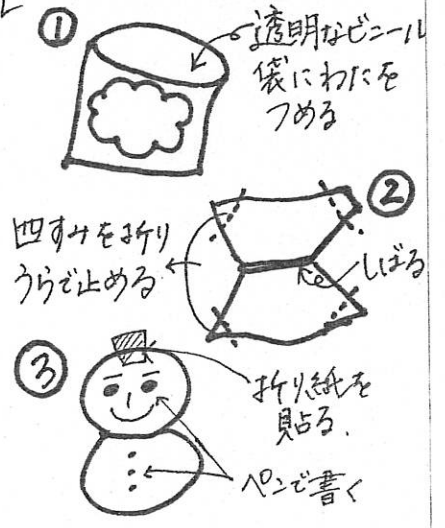 ①
透明なビニール
袋にわたを
つめる
②
四すみを折り
うらで止める
しばる
③
折り紙を
貼る.
ペンで書く